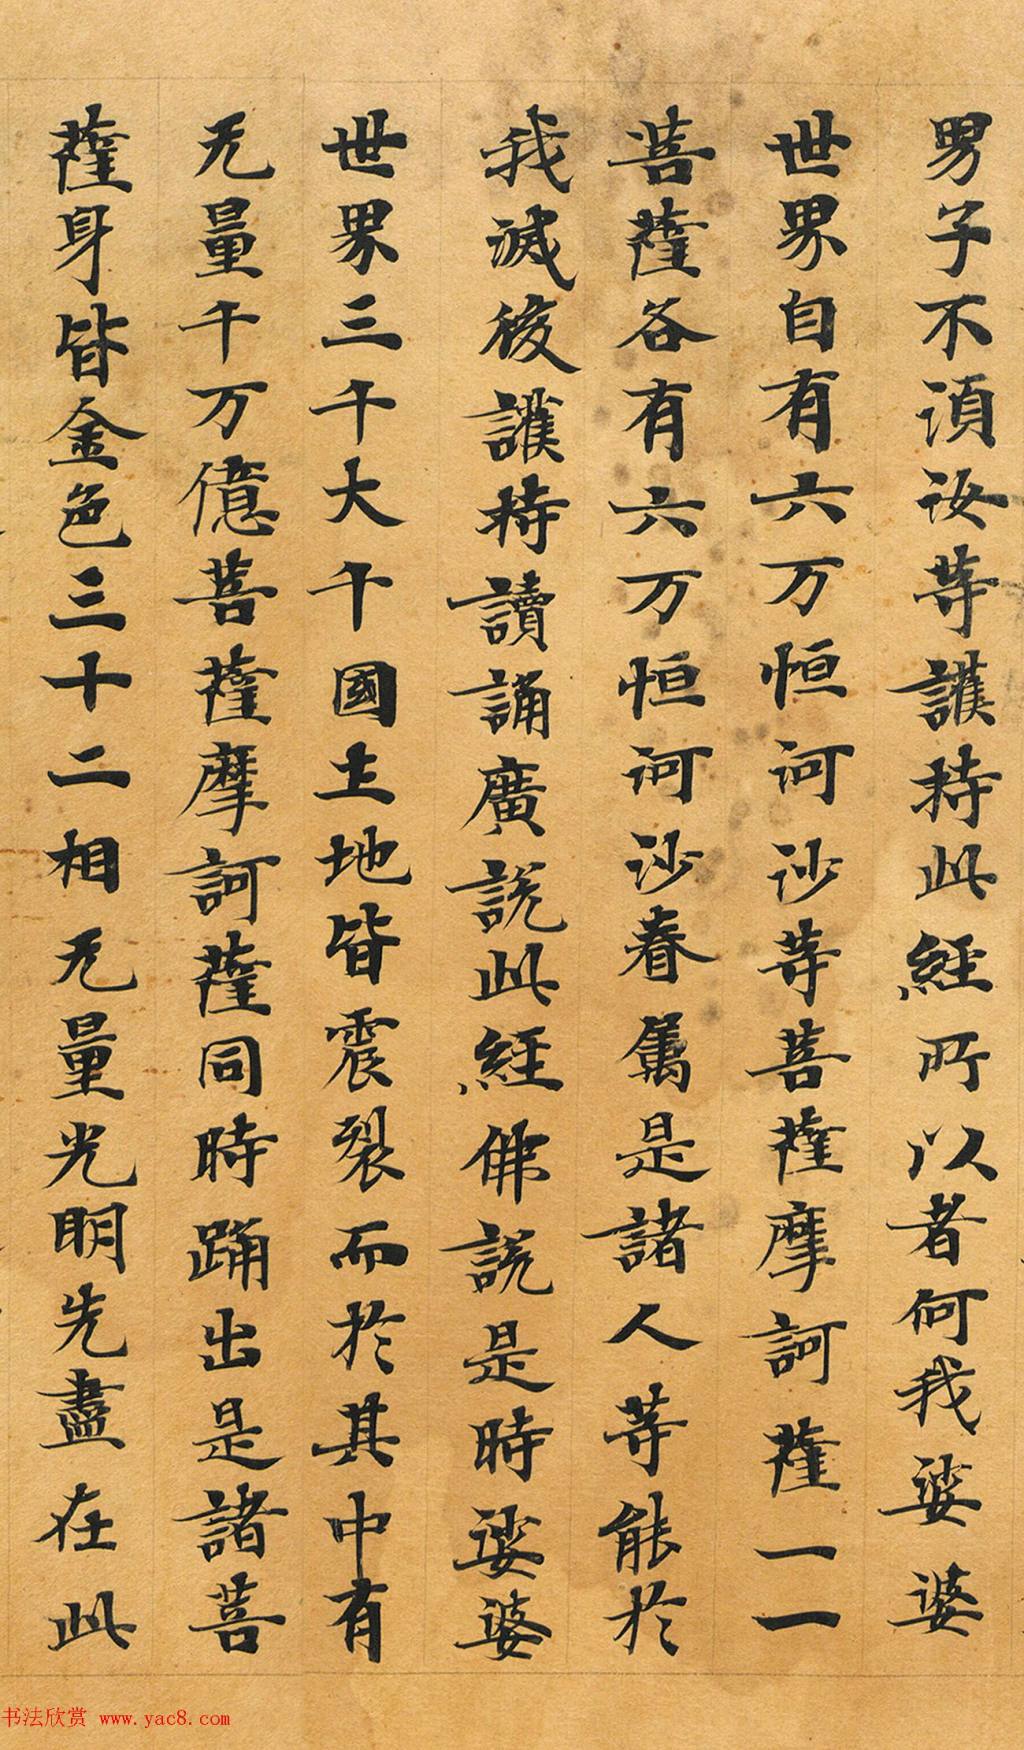 男子不須汝等護持此經所以者何我娑婆
世界自有六万恒河沙等菩薩摩訶薩一一
菩薩各有六万恒河沙眷属是諸人等能於
我滅後護持讀誦廣說此經佛說是時娑婆
世界三千大千國土地皆震裂而於其中有
无量千万億菩薩摩訶薩同時踊出是諸菩
薩身皆金色三十二相无量光明先盡在此
书法欣赏 www.yac8.com